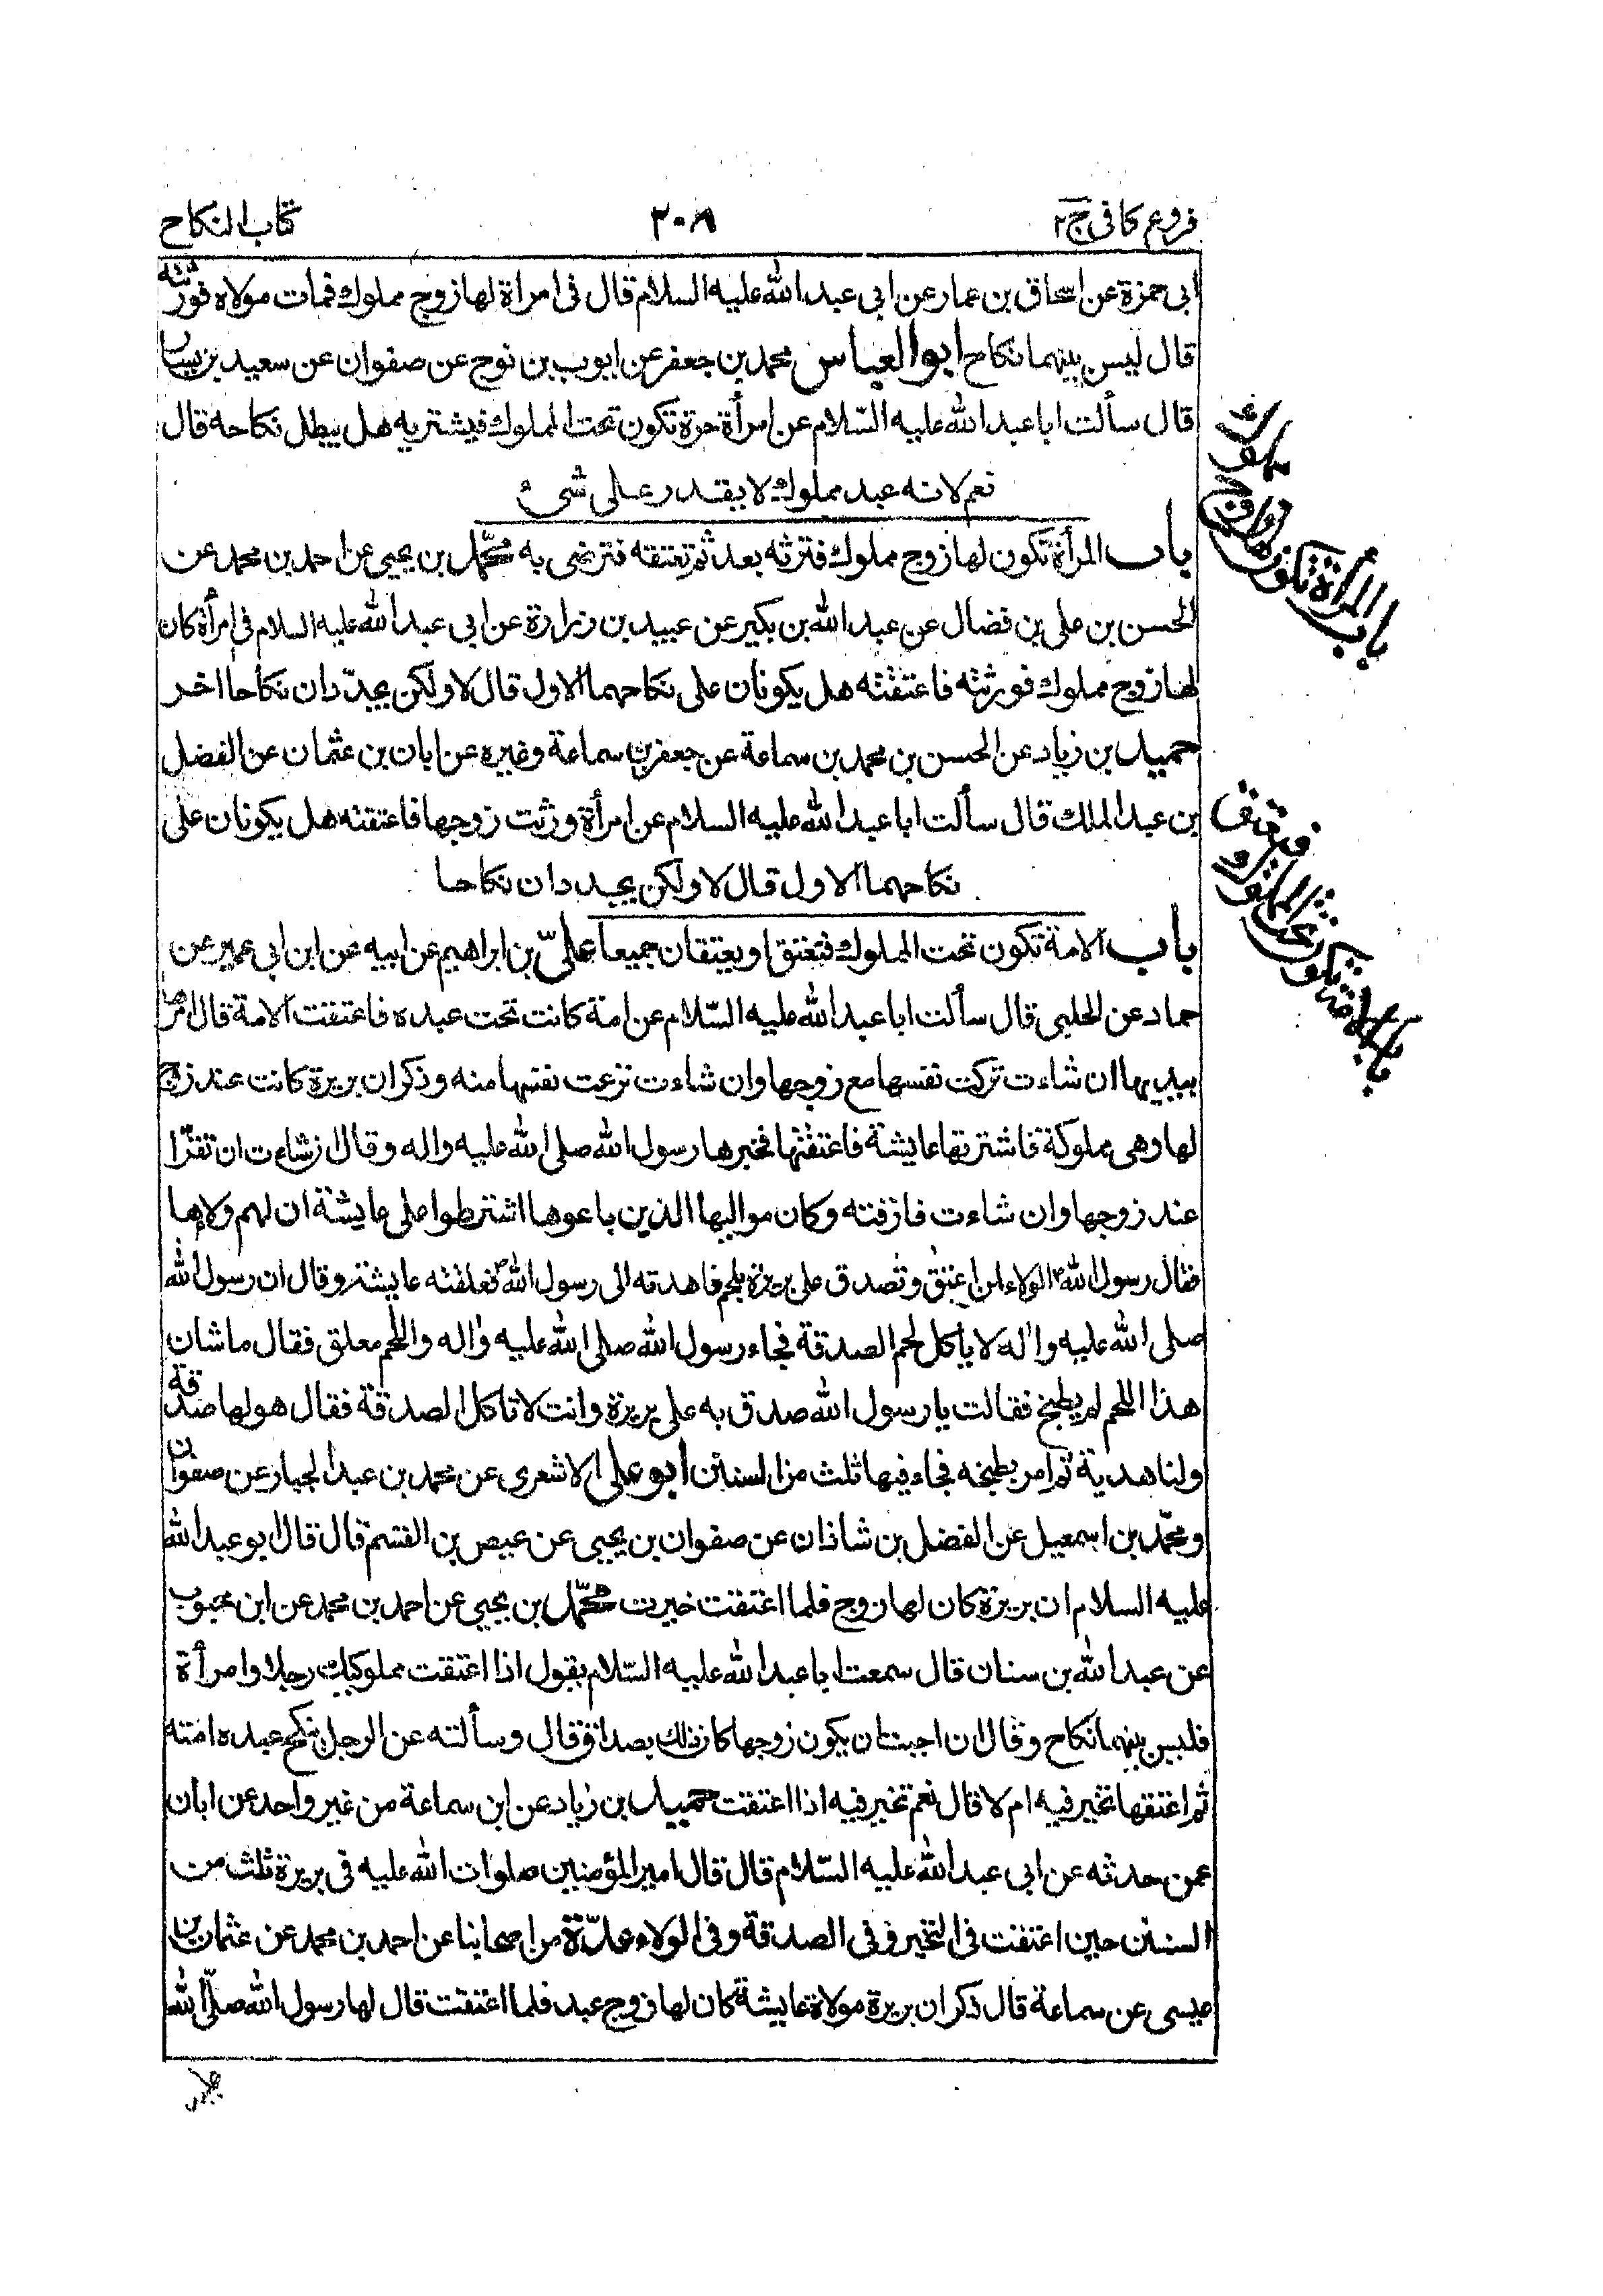 فروع كافى ج٢
٢٠٨
كتاب النكاح
ابى حمزة عن اسحاق بن عمار عن ابى عبد الله عليه السلام قال فى امراة لها زوج مملوك فمات مولاه فورثته
قال ليس بينهما نكاح ابو العباس محمد بن جعفر عن ايوب بن نوح عن صفوان عن سعيد بن يسار
قال سألت ابا عبد الله عليه السّلام عن امرأة حرة تكون تحت المملوك فيشتريه هل يبطل نكاحه قال
نعم لانه عبد مملوك لا يقدر على شئ
باب المرأة تكون لها زوج مملوك فترثه بعد ثم تعتقه فترضى به محمّد بن يحيى عن احمد بن محمد عن
الحسن بن على بن فضال عن عبد الله بن بكير عن عبيد بن زرارة عن ابى عبد الله عليه السلام فى امرأة كان
لها زوج مملوك فورثته فاعتقته هل يكونان على نكاحهما الاول قال لا ولكن يجدّدان نكاحا اخر
حميد بن زياد عن الحسن بن محمد بن سماعة عن جعفر بن سماعة وغيره عن ابان بن عثمان عن الفضل
بن عبد الملك قال سألت ابا عبد الله عليه السلام عن امرأة ورثت زوجها فاعتقته هل يكونان على
نكاحهما الاول قال لا ولكن يجددان نكاحا
باب الامة تكون تحت المملوك فتعتق او يعتقان جميعا علىّ بن ابراهيم عن ابيه عن ابن ابى عمير عن
حماد عن الحلبى قال سألت ابا عبد الله عليه السّلام عن امة كانت تحت عبده فاعتقت الامة قال امرها
بيديها ان شاءت تركت نفسها مع زوجها وان شاءت نزعت نفسها منه وذكر ان بريرة كانت عند زوج
لها وهى مملوكة فاشترتها عايشة فاعتقتها فخيرها رسول الله صلى الله عليه واله وقال ان شاءت ان تقرّ
عند زوجها وان شاءت فارقته وكان مواليها الذين باعوها اشترطوا على عايشة ان لهم ولاءها
فقال رسول الله ص الولاء لمن اعتق وتصدق على بريرة بلحم فاهدته الى رسول الله ص فعلقته عايشة وقال ان رسول الله
صلى الله عليه واله لا ياكل لحم الصدقة فجاء رسول الله صلى الله عليه واله واللحم معلق فقال ما شان
هذا اللحم لم يطبخ فقالت يا رسول الله صدق به على بريرة وانت لا تاكل الصدقة فقال هو لها صدقة
ولنا هدية ثم امر بطبخه فجاء فيها ثلث من السنن ابو على الاشعرى عن محمد بن عبد الجبار عن صفوان
ومحمّد بن اسمعيل عن الفضل بن شاذان عن صفوان بن يحيى عن عيص بن القسم قال قال ابو عبد الله
عليه السلام ان بريرة كان لها زوج فلما اعتقت خيرت محمّد بن يحيى عن احمد بن محمد عن ابن محبوب
عن عبد الله بن سنان قال سمعت ابا عبد الله عليه السّلام يقول اذا اعتقت مملوكيك رجلا وامرأة
فليس بينهما نكاح وقال ان احببت ان يكون زوجها كان ذلك بصداق قال وسألته عن الرجل ينكح عبده امته
ثم اعتقها تخير فيه ام لا قال نعم تخير فيه اذا اعتقت حميد بن زياد عن ابن سماعة من غير واحد عن ابان
عمن حدثه عن ابى عبد الله عليه السّلام قال قال امير المؤمنين صلوات الله عليه فى بريرة ثلث من
السنن حين اعتقت فى التخير وفى الصدقة وفى الولاء عدّة من اصحابنا عن احمد بن محمد عن عثمان بن
عيسى عن سماعة قال ذكر ان بريرة مولاة عايشة كان لها زوج عبد فلما اعتقت قال لها رسول الله صلّى الله
باب المرأة تكون لها زوج مملوك
باب الامة تكون تحت المملوك فتعتق